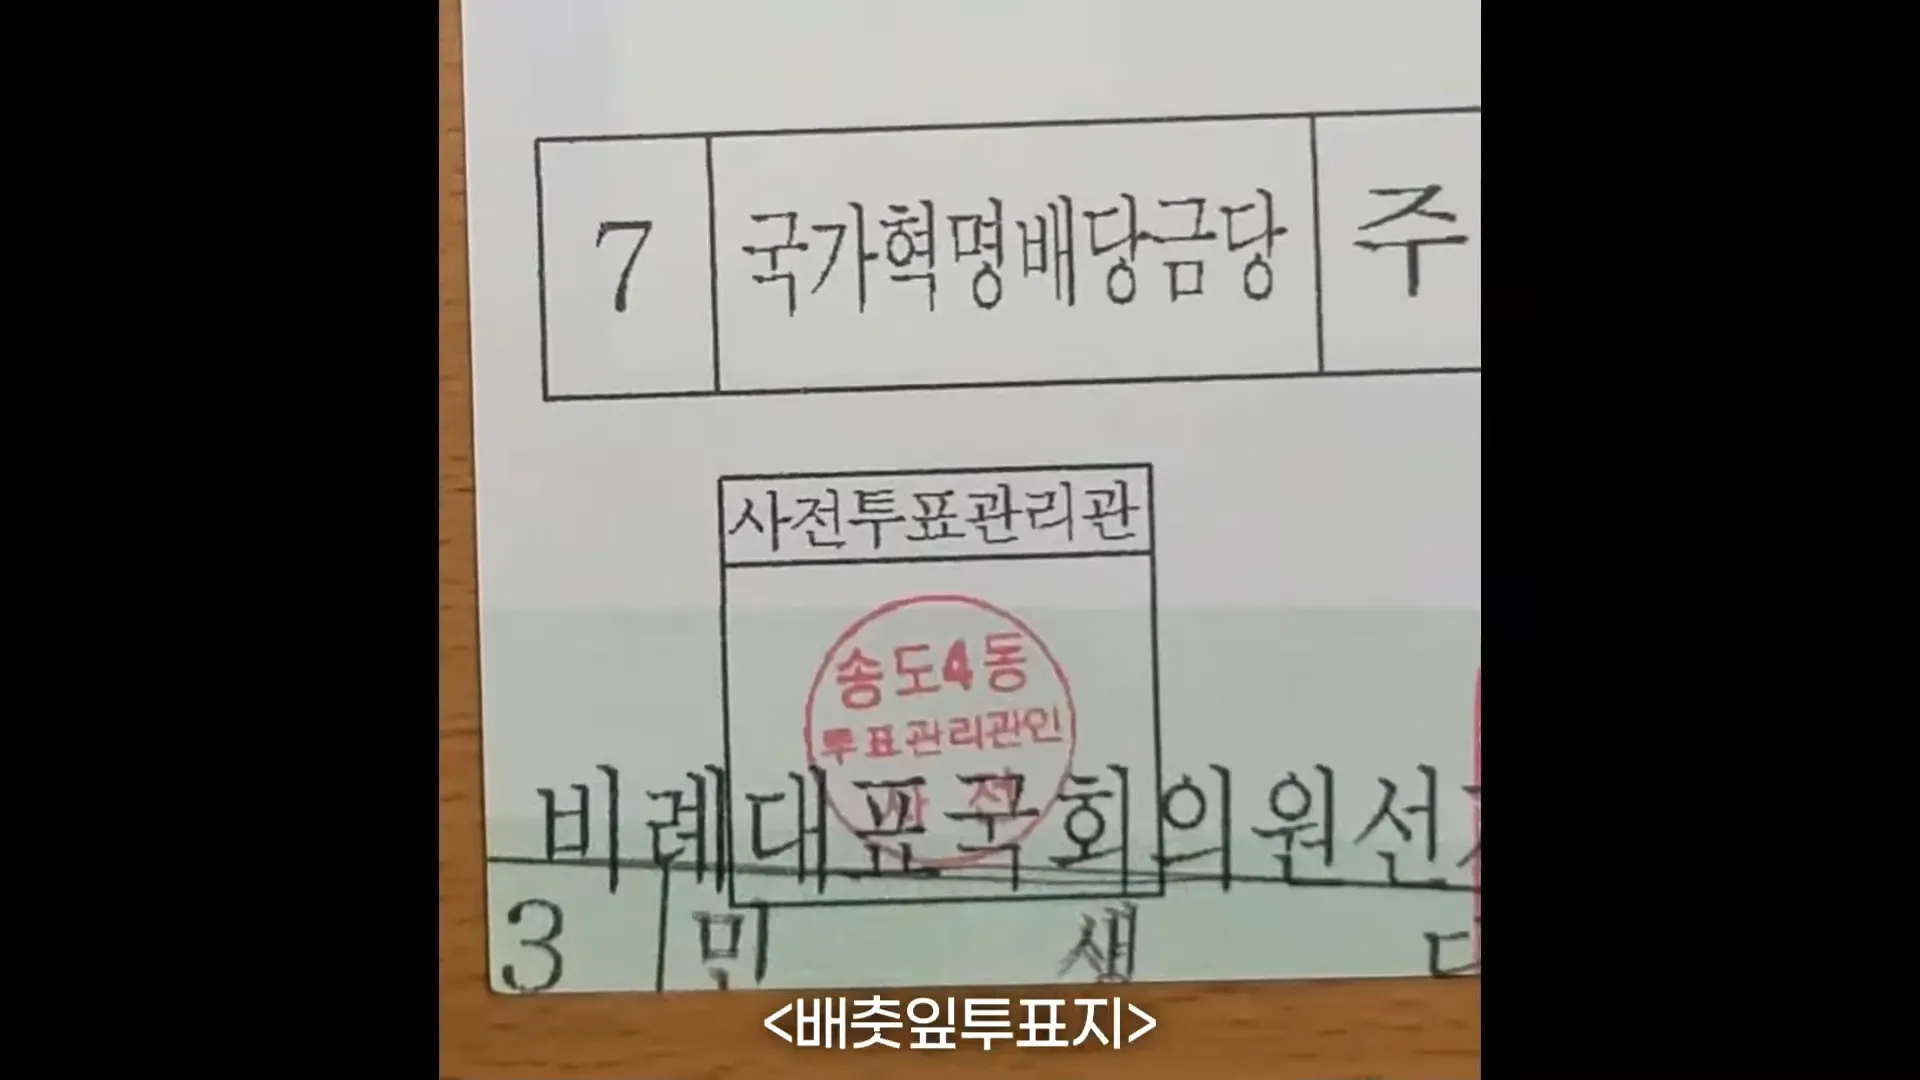 7 국가혁명배당금당 주
사전투표관리관
송도4동
투표관리관인
사 전
비례대표국회의원선
3 민 생
<배춧잎투표지>